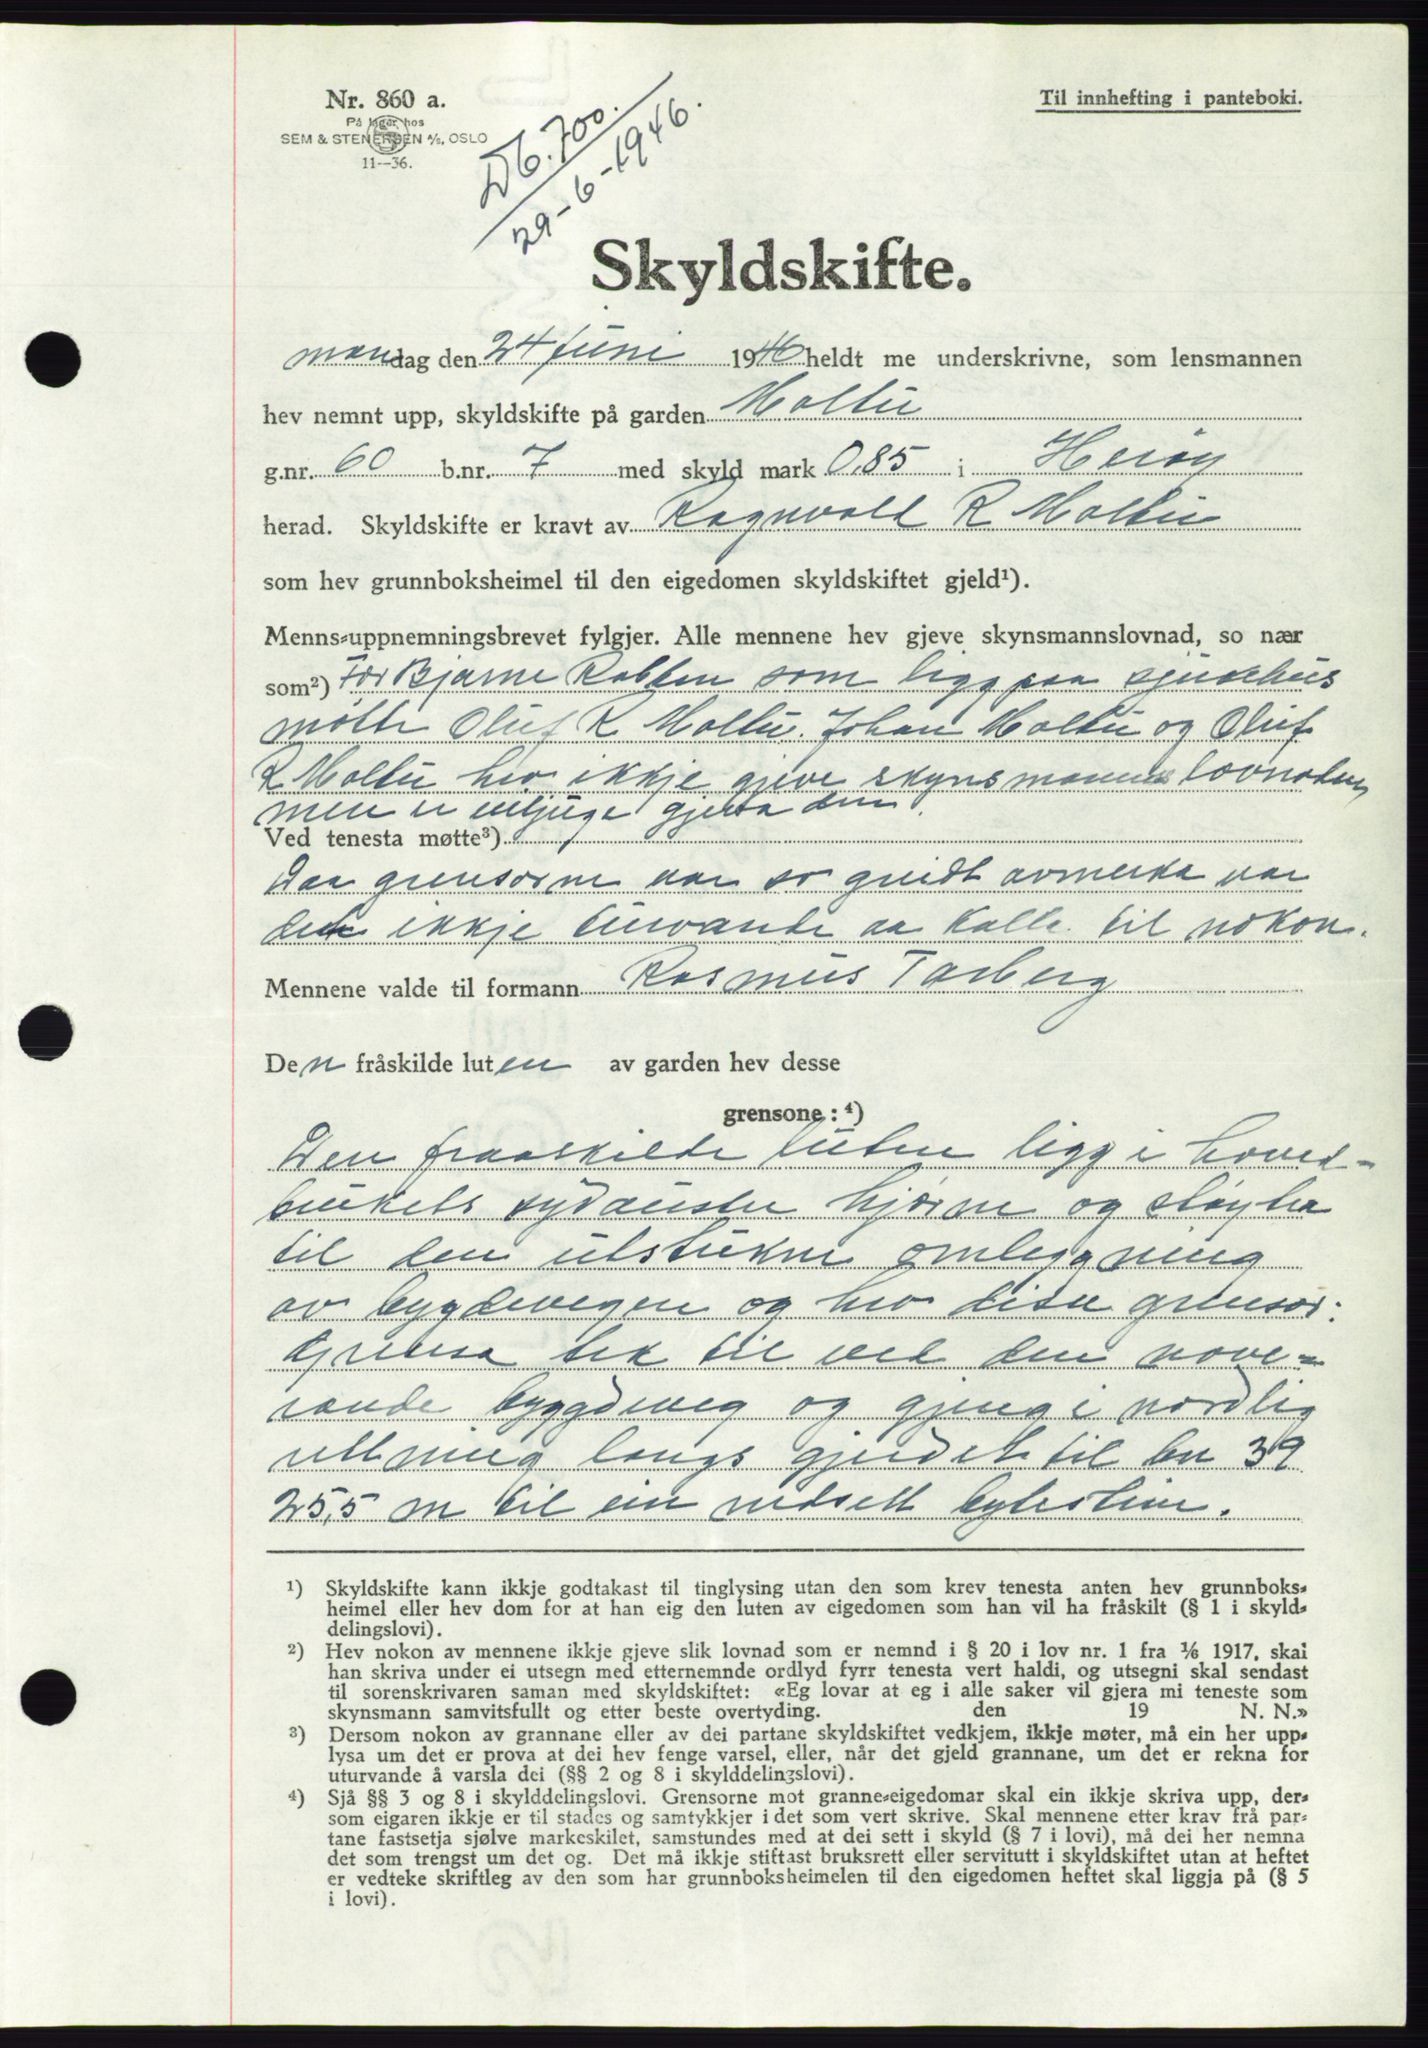 Nr. 860 a.
På lager hos
SEM & STENERSEN A/S, OSLO
11--36.
Til innhefting i panteboki.
Db. 700.
29-6-1946.
Skyldskifte.
mandag den 24 juni 1946 heldt me underskrivne, som lensmannen
hev nemnt upp, skyldskifte på garden Moltu
g.nr. 60 b.nr. 7 med skyld mark 0,85 i Herøy
herad. Skyldskifte er kravt av Ragnvald R Moltu
som hev grunnboksheimel til den eigedomen skyldskiftet gjeld¹).
Menns-uppnemningsbrevet fylgjer. Alle mennene hev gjeve skynsmannslovnad, so nær
som²) For Bjarne Rabben som ligg paa sjukehus
møtte Oluf R Moltu. Johan Moltu og Oluf
R Moltu hev ikkje gjeve skynsmanns lovnaden
men er viljuge gjera den.
Ved tenesta møtte³)
Daa grensorne var so greidt avmerka var
det ikkje turvande aa kalla til nokon.
Mennene valde til formann Rasmus Tarberg
Den fråskilde luten av garden hev desse
grensone: ⁴)
Den fraaskilde luten ligg i hoved-
bruket sydaustre hjørne og støyter
til den utstukne omleggning
av bygdevegen og hev disse grensor:
Grensa tek til ved den nove-
rande byggdeveg og gjeng i nordlig
rettning langs gjerdet til bn 39
25,5 m til ein nedsett bytestein.
¹) Skyldskifte kann ikkje godtakast til tinglysing utan den som krev tenesta anten hev grunnboks-
heimel eller hev dom for at han eig den luten av eigedomen som han vil ha fråskilt (§ 1 i skyld-
delingslovi).
²) Hev nokon av mennene ikkje gjeve slik lovnad som er nemnd i § 20 i lov nr. 1 fra 1/6 1917, skal
han skriva under ei utsegn med etternemnde ordlyd fyrr tenesta vert haldi, og utsegni skal sendast
til sorenskrivaren saman med skyldskiftet: «Eg lovar at eg i alle saker vil gjera mi teneste som
skynsmann samvitsfullt og etter beste overtyding. den 19 N. N.»
³) Dersom nokon av grannane eller av dei partane skyldskiftet vedkjem, ikkje møter, må ein her upp-
lysa um det er prova at dei hev fenge varsel, eller, når det gjeld grannane, um det er rekna for
uturvande å varsla dei (§§ 2 og 8 i skylddelingslovi).
⁴) Sjå §§ 3 og 8 i skylddelingslovi. Grensorne mot granne-eigedomar skal ein ikkje skriva upp, der-
som eigaren ikkje er til stades og samtykkjer i det som vert skrive. Skal mennene etter krav frå par-
tane fastsetja sjølve markeskilet, samstundes med at dei sett i skyld (§ 7 i lovi), må dei her nemna
det som trengst um det og. Det må ikkje stiftast bruksrett eller servitutt i skyldskiftet utan at heftet
er vedteke skriftleg av den som har grunnboksheimelen til den eigedomen heftet skal liggja på (§ 5
i lovi).